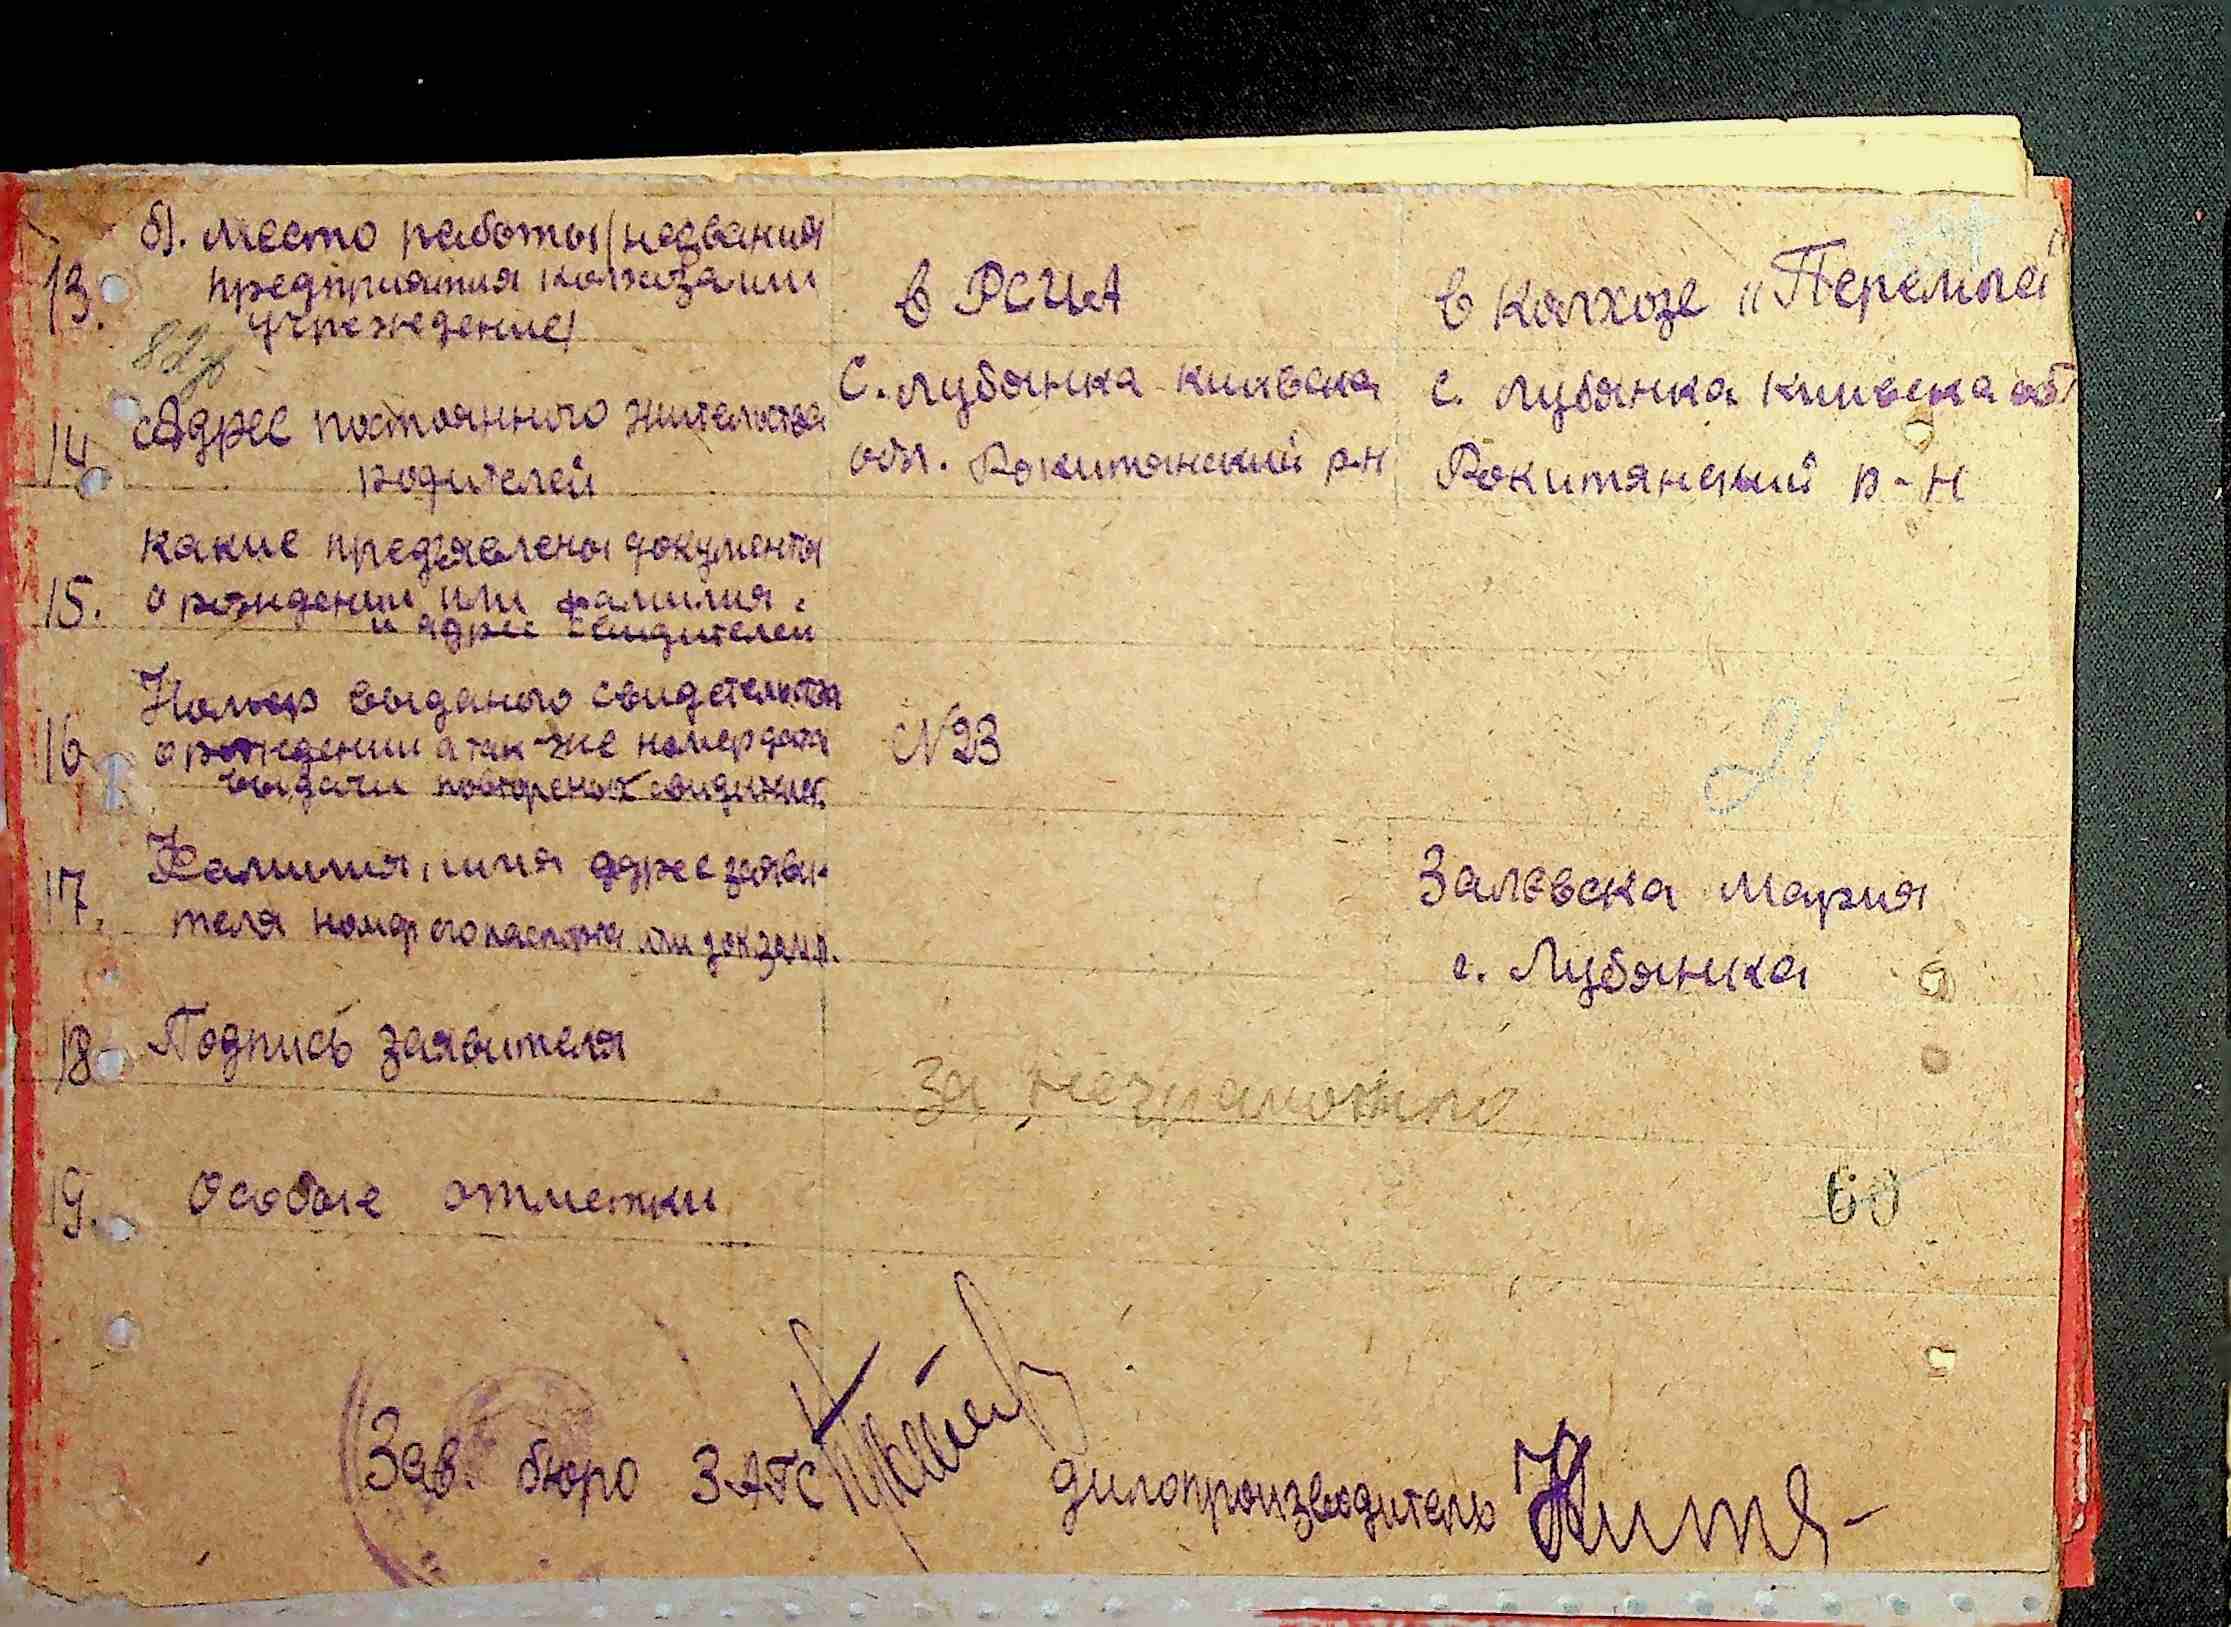 б). место работы (название
13. предприятия колхоза или
учреждение)
в РСЧА
в колхозе "Перемога"
82
14. Адрес постоянного жительства
родителей
с. Лубянка Киивска
обл. Рокитянский р-н
с. Лубянка Киивска обл
Рокитянский р-н
какие предъявлены документы
15. о рождении или фамилия
и адрес свидителей
Номер выданого свидетельства
16. о рождении а так-же номер дата
выдачи повтореных
№23
Фамилия, имя адрес заяви-
17. теля номер его паспорта или
Залевска Мария
с. Лубянка
18. Подпись заявителя
За неграмотно
19. Особые отметки
60
Зав. бюро ЗАГС
дилопроизводитель